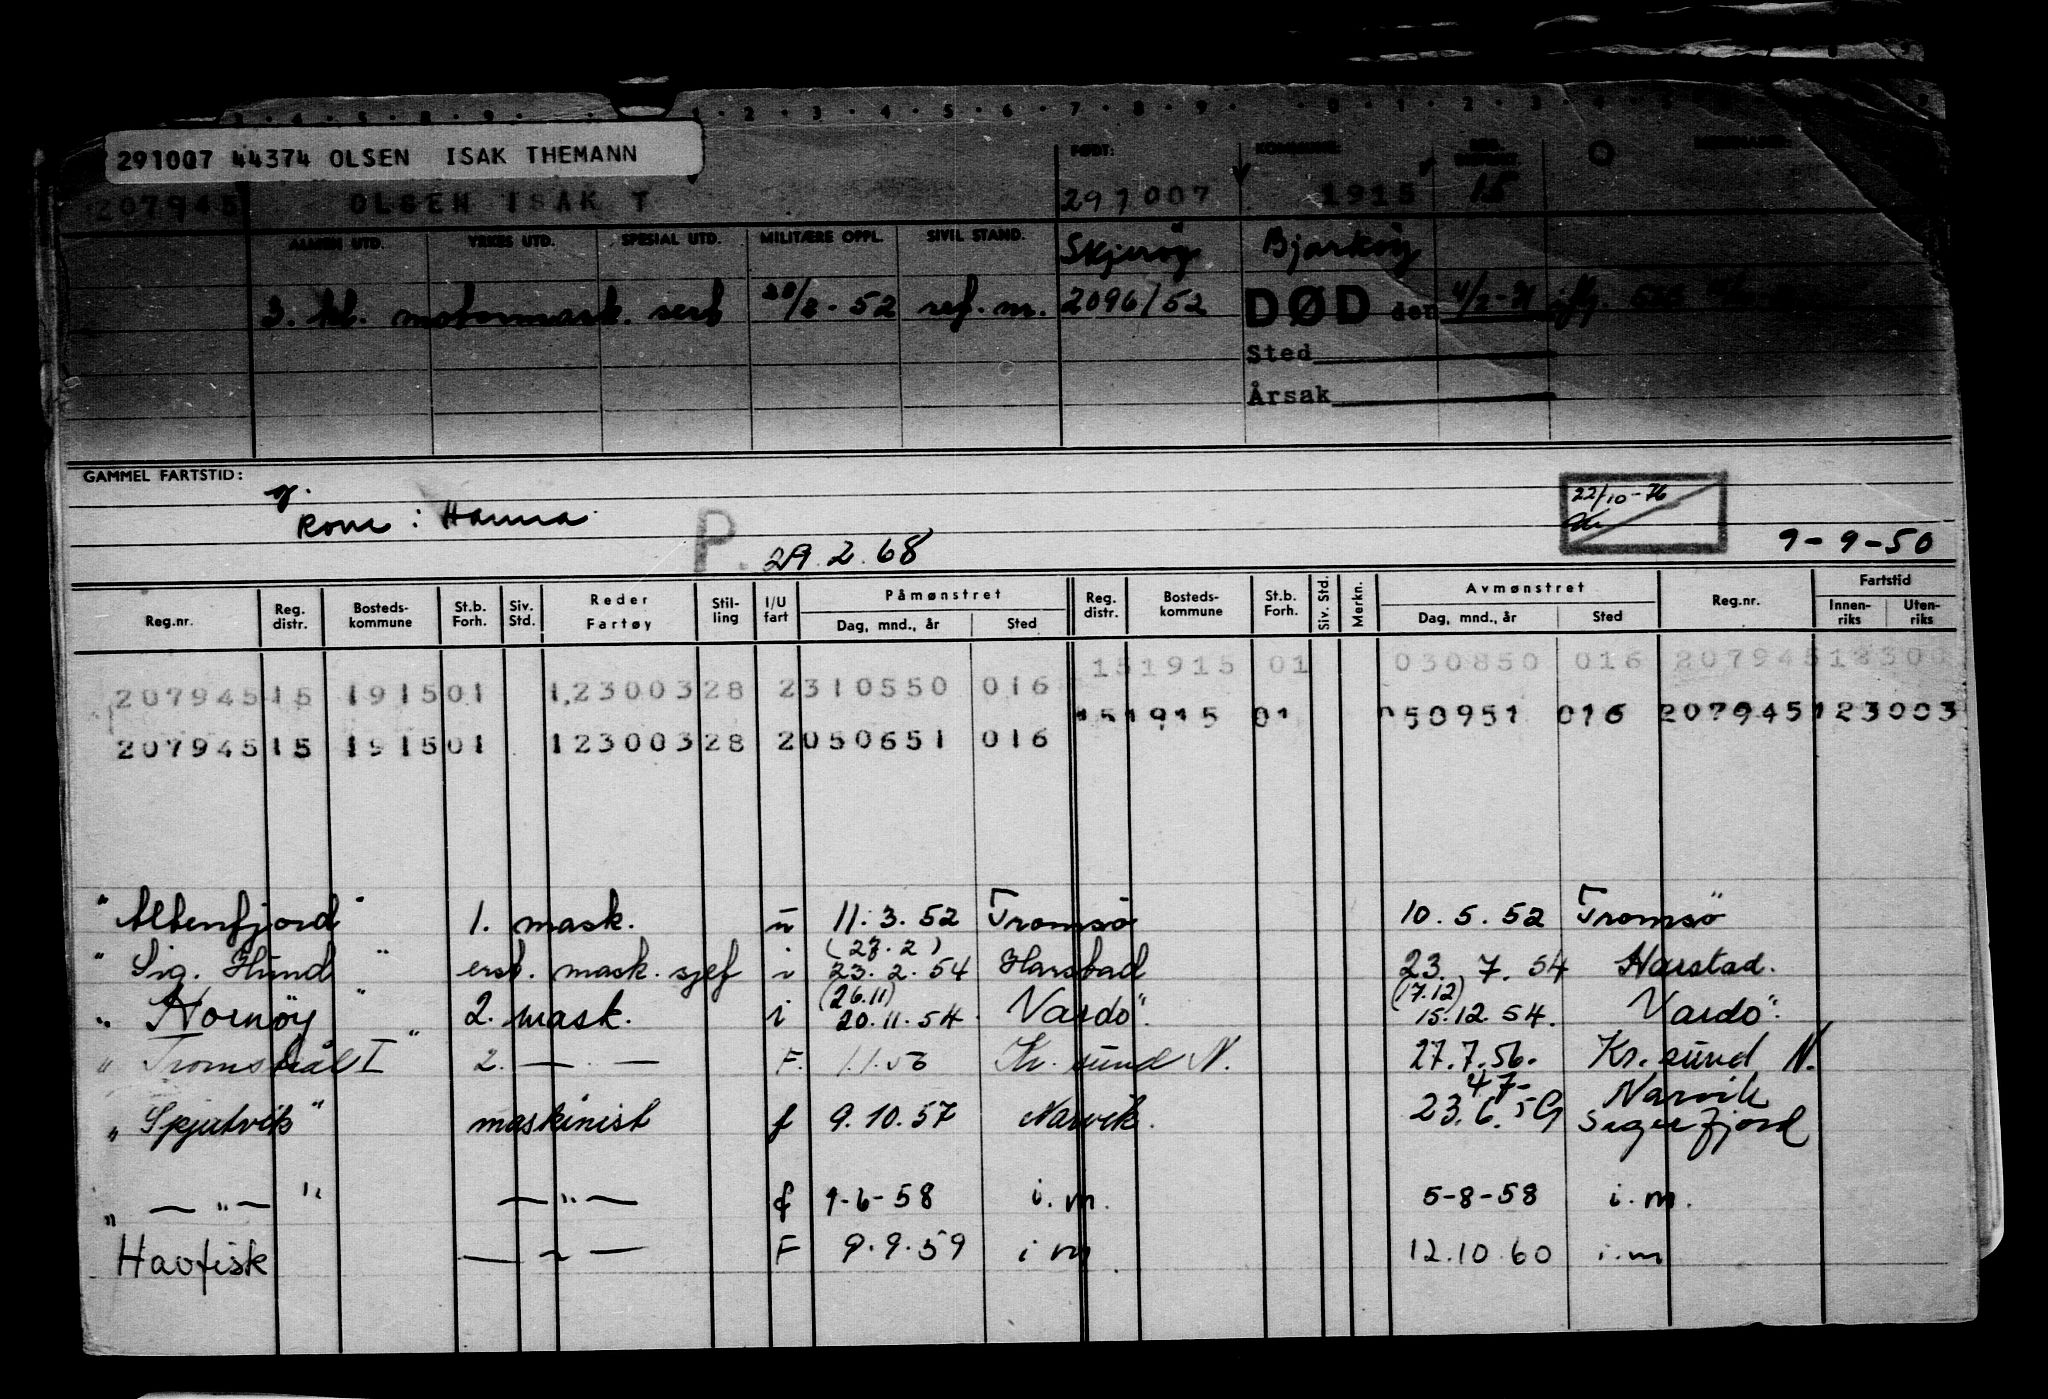 291007 44374 OLSEN ISAK THEMANN
FØDT: KOMMUNE:
207945 OLSEN ISAK T 291007 1915 15
ALMEN UTD. YRKES UTD. SPESIAL UTD. MILITÆRE OPPL. SIVIL STAND. Skjerøy Bjarkøy
3. kl. motormask. sert 20/8-52 ref. nr. 2096/52 DØD den
Sted
Årsak
GAMMEL FARTSTID:
22/10-76
Kone: Hanna
P. 29.2.68 9-9-50
Reg.nr. Reg. distr. Bosteds-kommune St.b. Forh. Siv. Std. Reder Fartøy Stil-ling I/U fart Påmønstret Dag, mnd., år Sted Reg. distr. Bosteds-kommune St.b. Forh. Siv. Std. Merkn. Avmønstret Dag, mnd., år Sted Reg.nr. Fartstid Innen-riks Uten-riks
207945 15 1915 01 1,23003 28 2 310550 016 15 1915 01 030850 016 207945 12300
15 1915 01 050951 016 207945 123003
207945 15 1915 01 123003 28 2 050651 016
"Altenfjord" 1. mask. u 11.3.52 Tromsø 10.5.52 Tromsø
(27.2)
"Sig. Hund" erst. mask. sjef i 23.2.54 Harstad 23.7.54 Harstad.
(26.11) (17.12)
"Hornøy" 2. mask. i 20.11.54 Vardø. 15.12.54. Vardø.
"Tromskål I" 2. — — F. 1.1.56 Kr. sund N. 27.7.56. Kr. sund N.
47- Narvik
"Skjutvik" maskinist f 9.10.57 Narvik. 23.6.59 Sigerfjord
" — " — " — " — f 9-6-58 i.m. 5-8-58 i.m.
Havfisk — " — F 9.9.59 i m 12.10.60 i.m